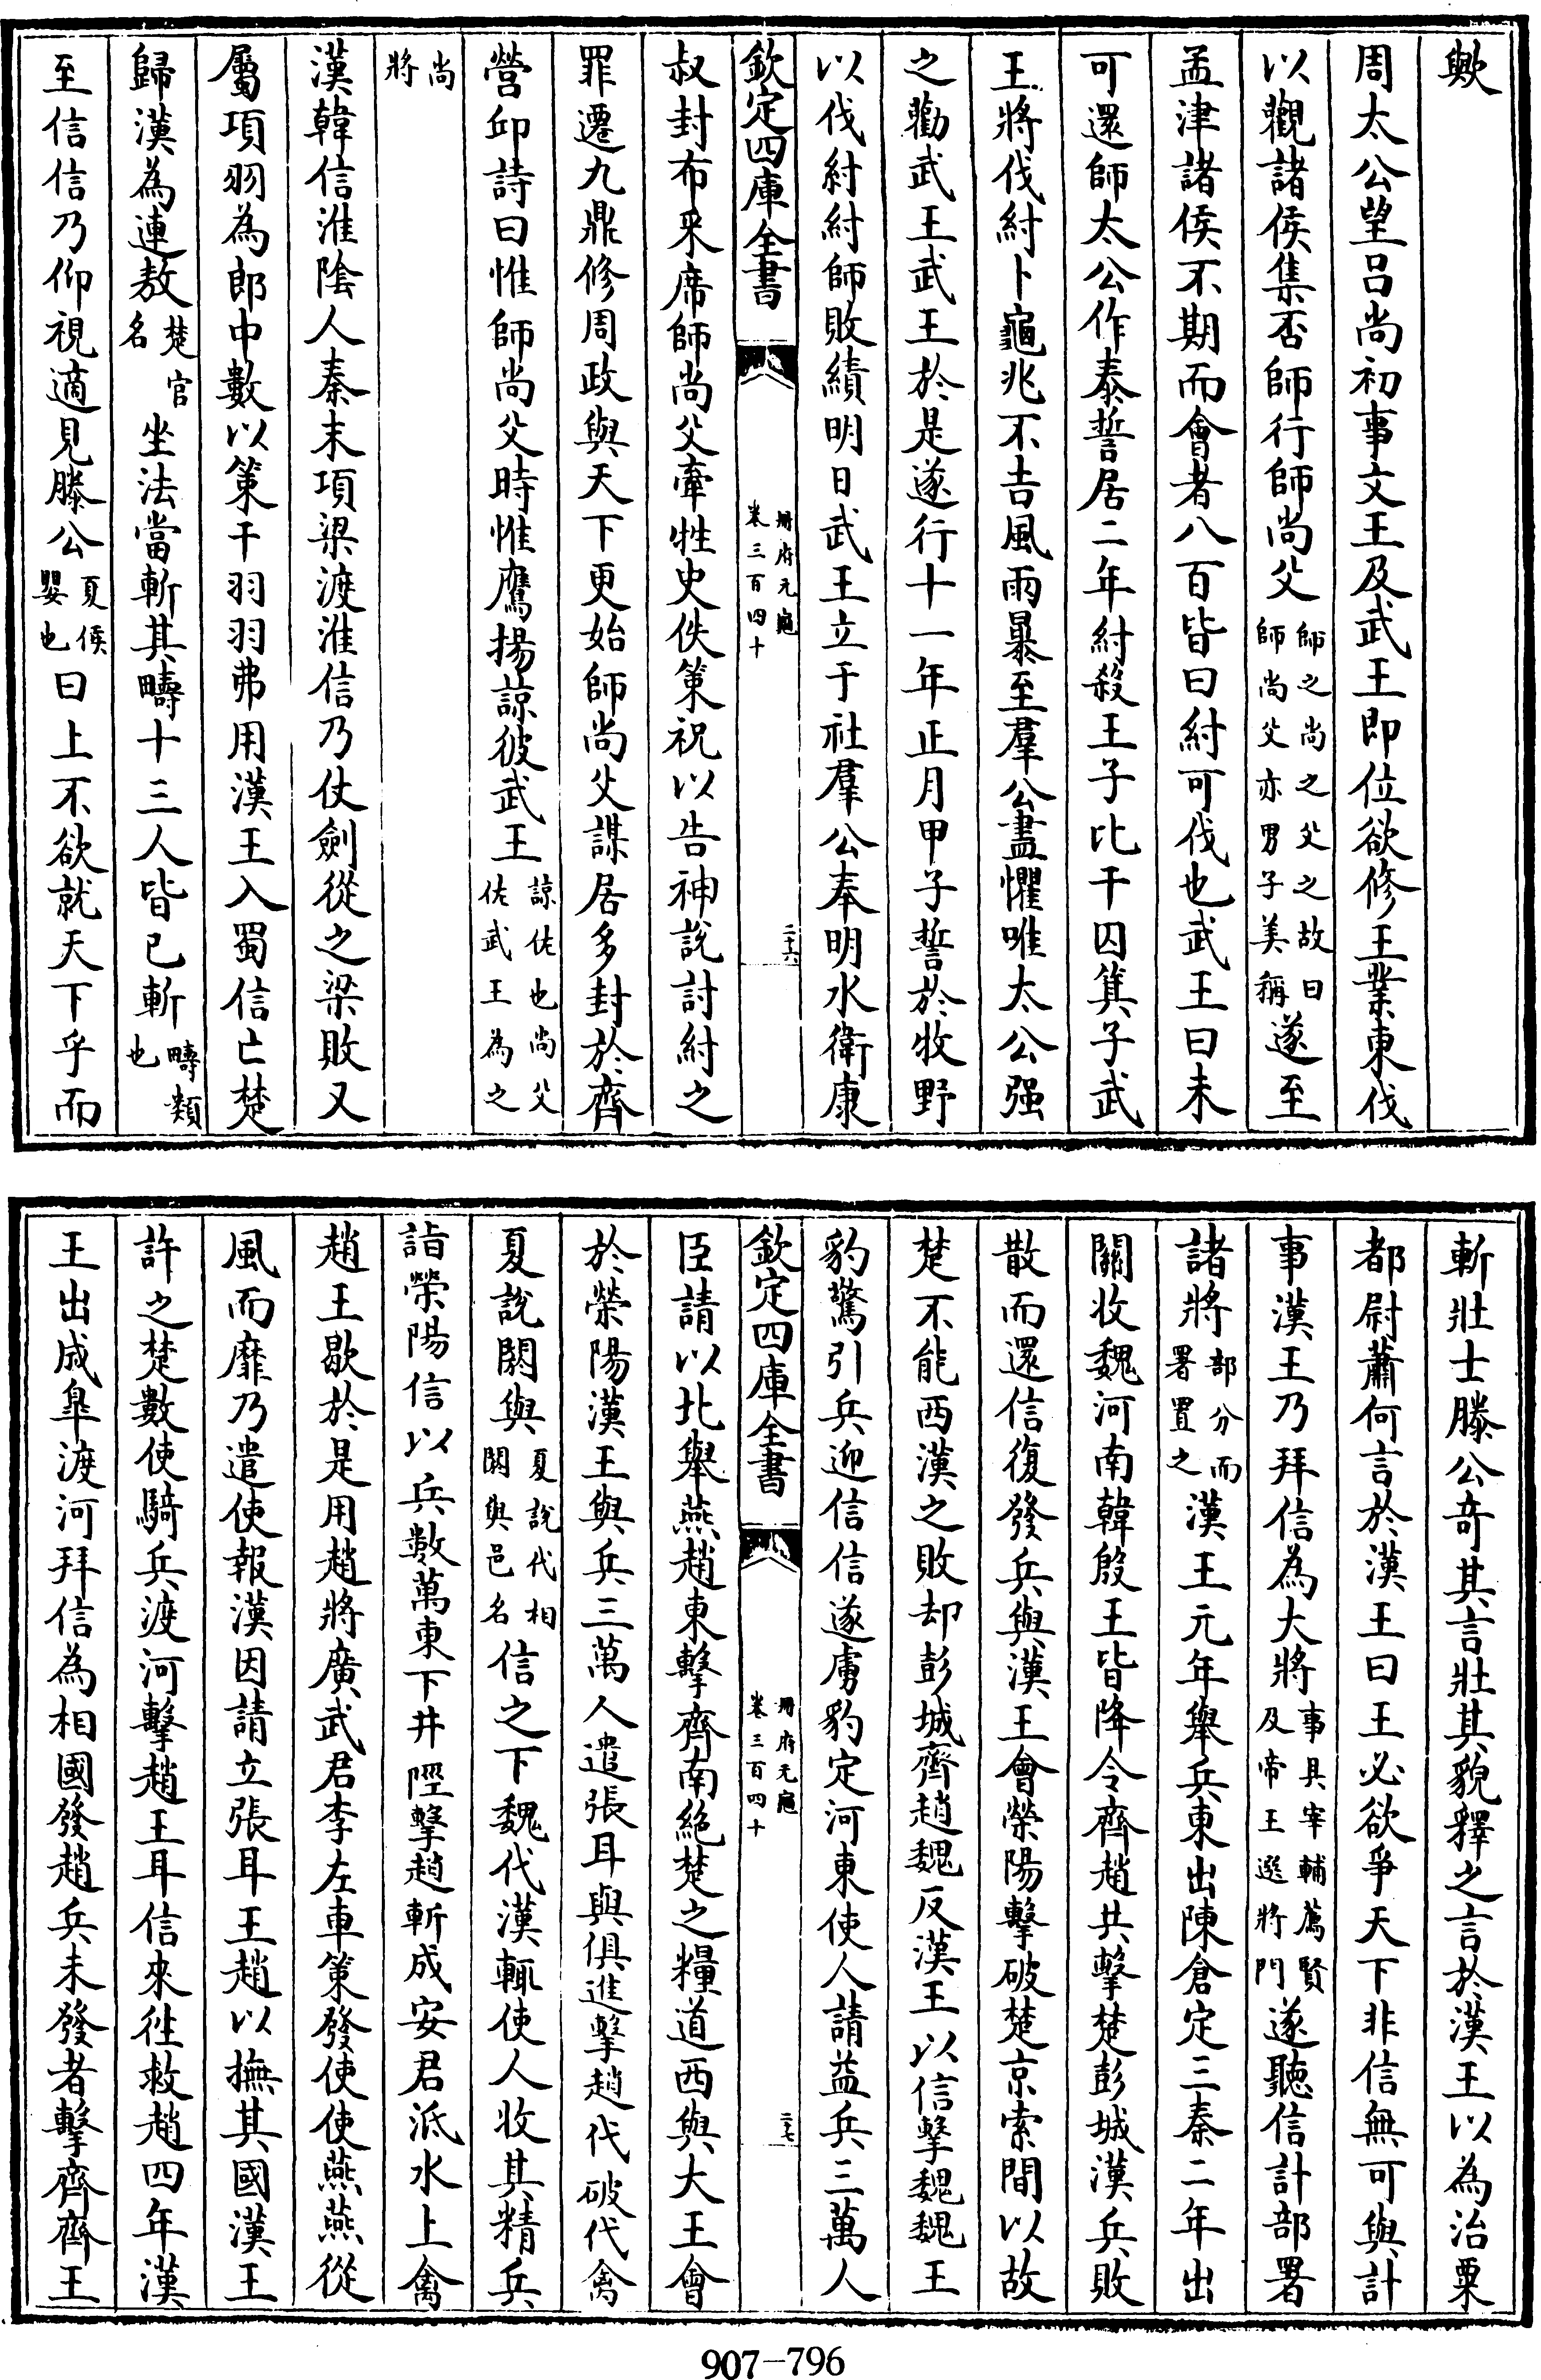 歟
周太公望吕尚初事文王及武王即位欲修王業東伐
以觀諸侯集否師行師尚父師之尚之父之故曰師尚父亦男子美稱遂至
孟津諸侯不期而會者八百皆曰紂可伐也武王曰未
可還師太公作泰誓居二年紂殺王子比干囚箕子武
王將伐紂卜龜兆不吉風雨暴至羣公盡懼唯太公强
之勸武王武王於是遂行十一年正月甲子誓於牧野
以伐紂紂師敗績明日武王立于社羣公奉明水衛康
欽定四庫全書 冊府元龜卷三百四十 二十六
叔封布采席師尚父牽牲史佚策祝以告神說討紂之
罪遷九鼎修周政與天下更始師尚父謀居多封於齊
營邱詩曰惟師尚父時惟鷹揚諒彼武王諒佐也尚父佐武王為之
尚將
漢韓信淮陰人秦末項梁渡淮信乃仗劍從之梁敗又
屬項羽為郎中數以策干羽羽弗用漢王入蜀信亡楚
歸漢為連敖楚官名坐法當斬其疇十三人皆已斬疇類也
至信信乃仰視適見滕公夏侯嬰也曰上不欲就天下乎而
斬壯士滕公竒其言壯其貌釋之言於漢王以為治粟
都尉蕭何言於漢王曰王必欲爭天下非信無可與計
事漢王乃拜信為大將事具宰輔薦賢及帝王選將門遂聽信計部署
諸將部分而署置之漢王元年舉兵東出陳倉定三秦二年出
關收魏河南韓殷王皆降令齊趙共擊楚彭城漢兵敗
散而還信復發兵與漢王會滎陽擊破楚京索間以故
楚不能西漢之敗却彭城齊趙魏反漢王以信擊魏魏王
豹驚引兵迎信信遂虜豹定河東使人請益兵三萬人
欽定四庫全書 冊府元龜卷三百四十 二十七
臣請以北舉燕趙東擊齊南絶楚之糧道西與大王會
於滎陽漢王與兵三萬人遣張耳與俱進擊趙代破代禽
夏說閼與夏說代相閼與邑名信之下魏代漢輒使人收其精兵
詣滎陽信以兵數萬東下井陘擊趙斬成安君泜水上禽
趙王歇於是用趙將廣武君李左車策發使使燕燕從
風而靡乃遣使報漢因請立張耳王趙以撫其國漢王
許之楚數使騎兵渡河擊趙王耳信來往救趙四年漢
王出成臯渡河拜信為相國發趙兵未發者擊齊齊王
907-796